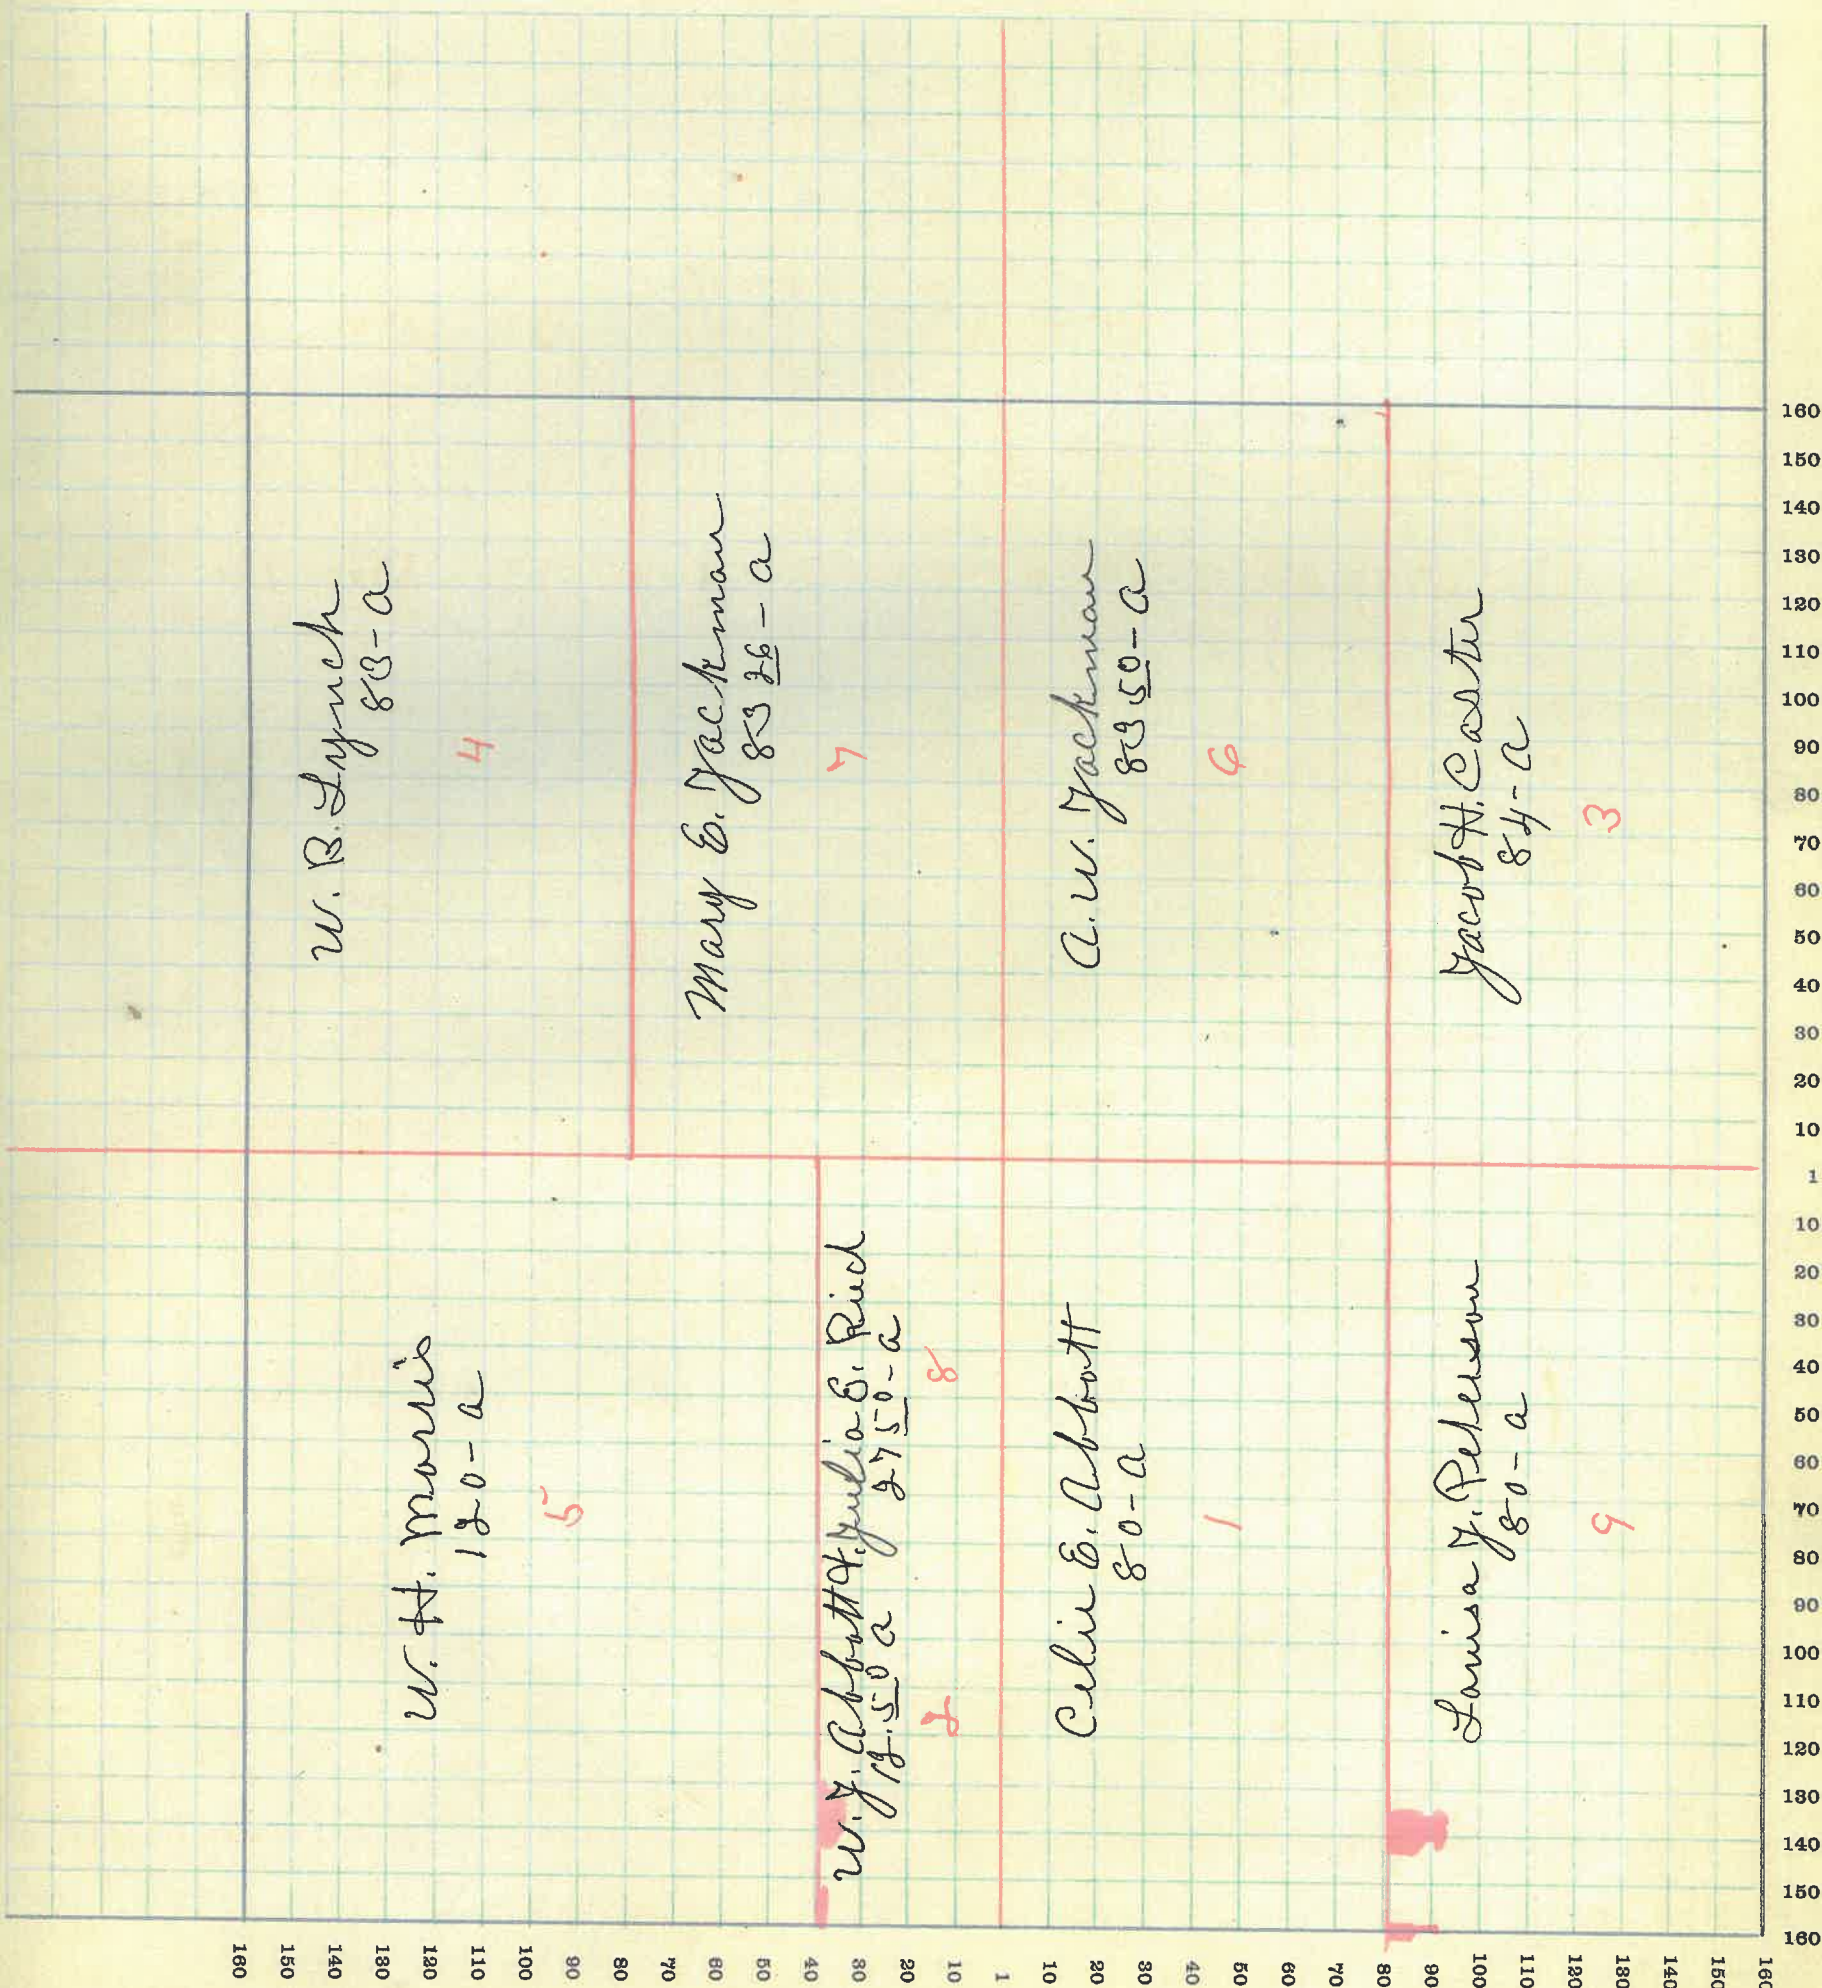 W. B. Lynch
83-a
4
Mary E. Jackman
83 26 - a
7
A. W. Jackman
83 50 - a
6
Jacob H. Caster
84-a
3
W. H. Morris
120-a
5
W. J. Abbott & Julia E. Ried
12.50 a 27 50-a
2 8
Celie E. Abbott
80-a
1
Louisa J. Peterson
80-a
9
160
150
140
130
120
110
100
90
80
70
60
50
40
30
20
10
1
10
20
30
40
50
60
70
80
90
100
110
120
130
140
150
160
160 150 140 130 120 110 100 90 80 70 60 50 40 30 20 10 1 10 20 30 40 50 60 70 80 90 100 110 120 130 140 150 160